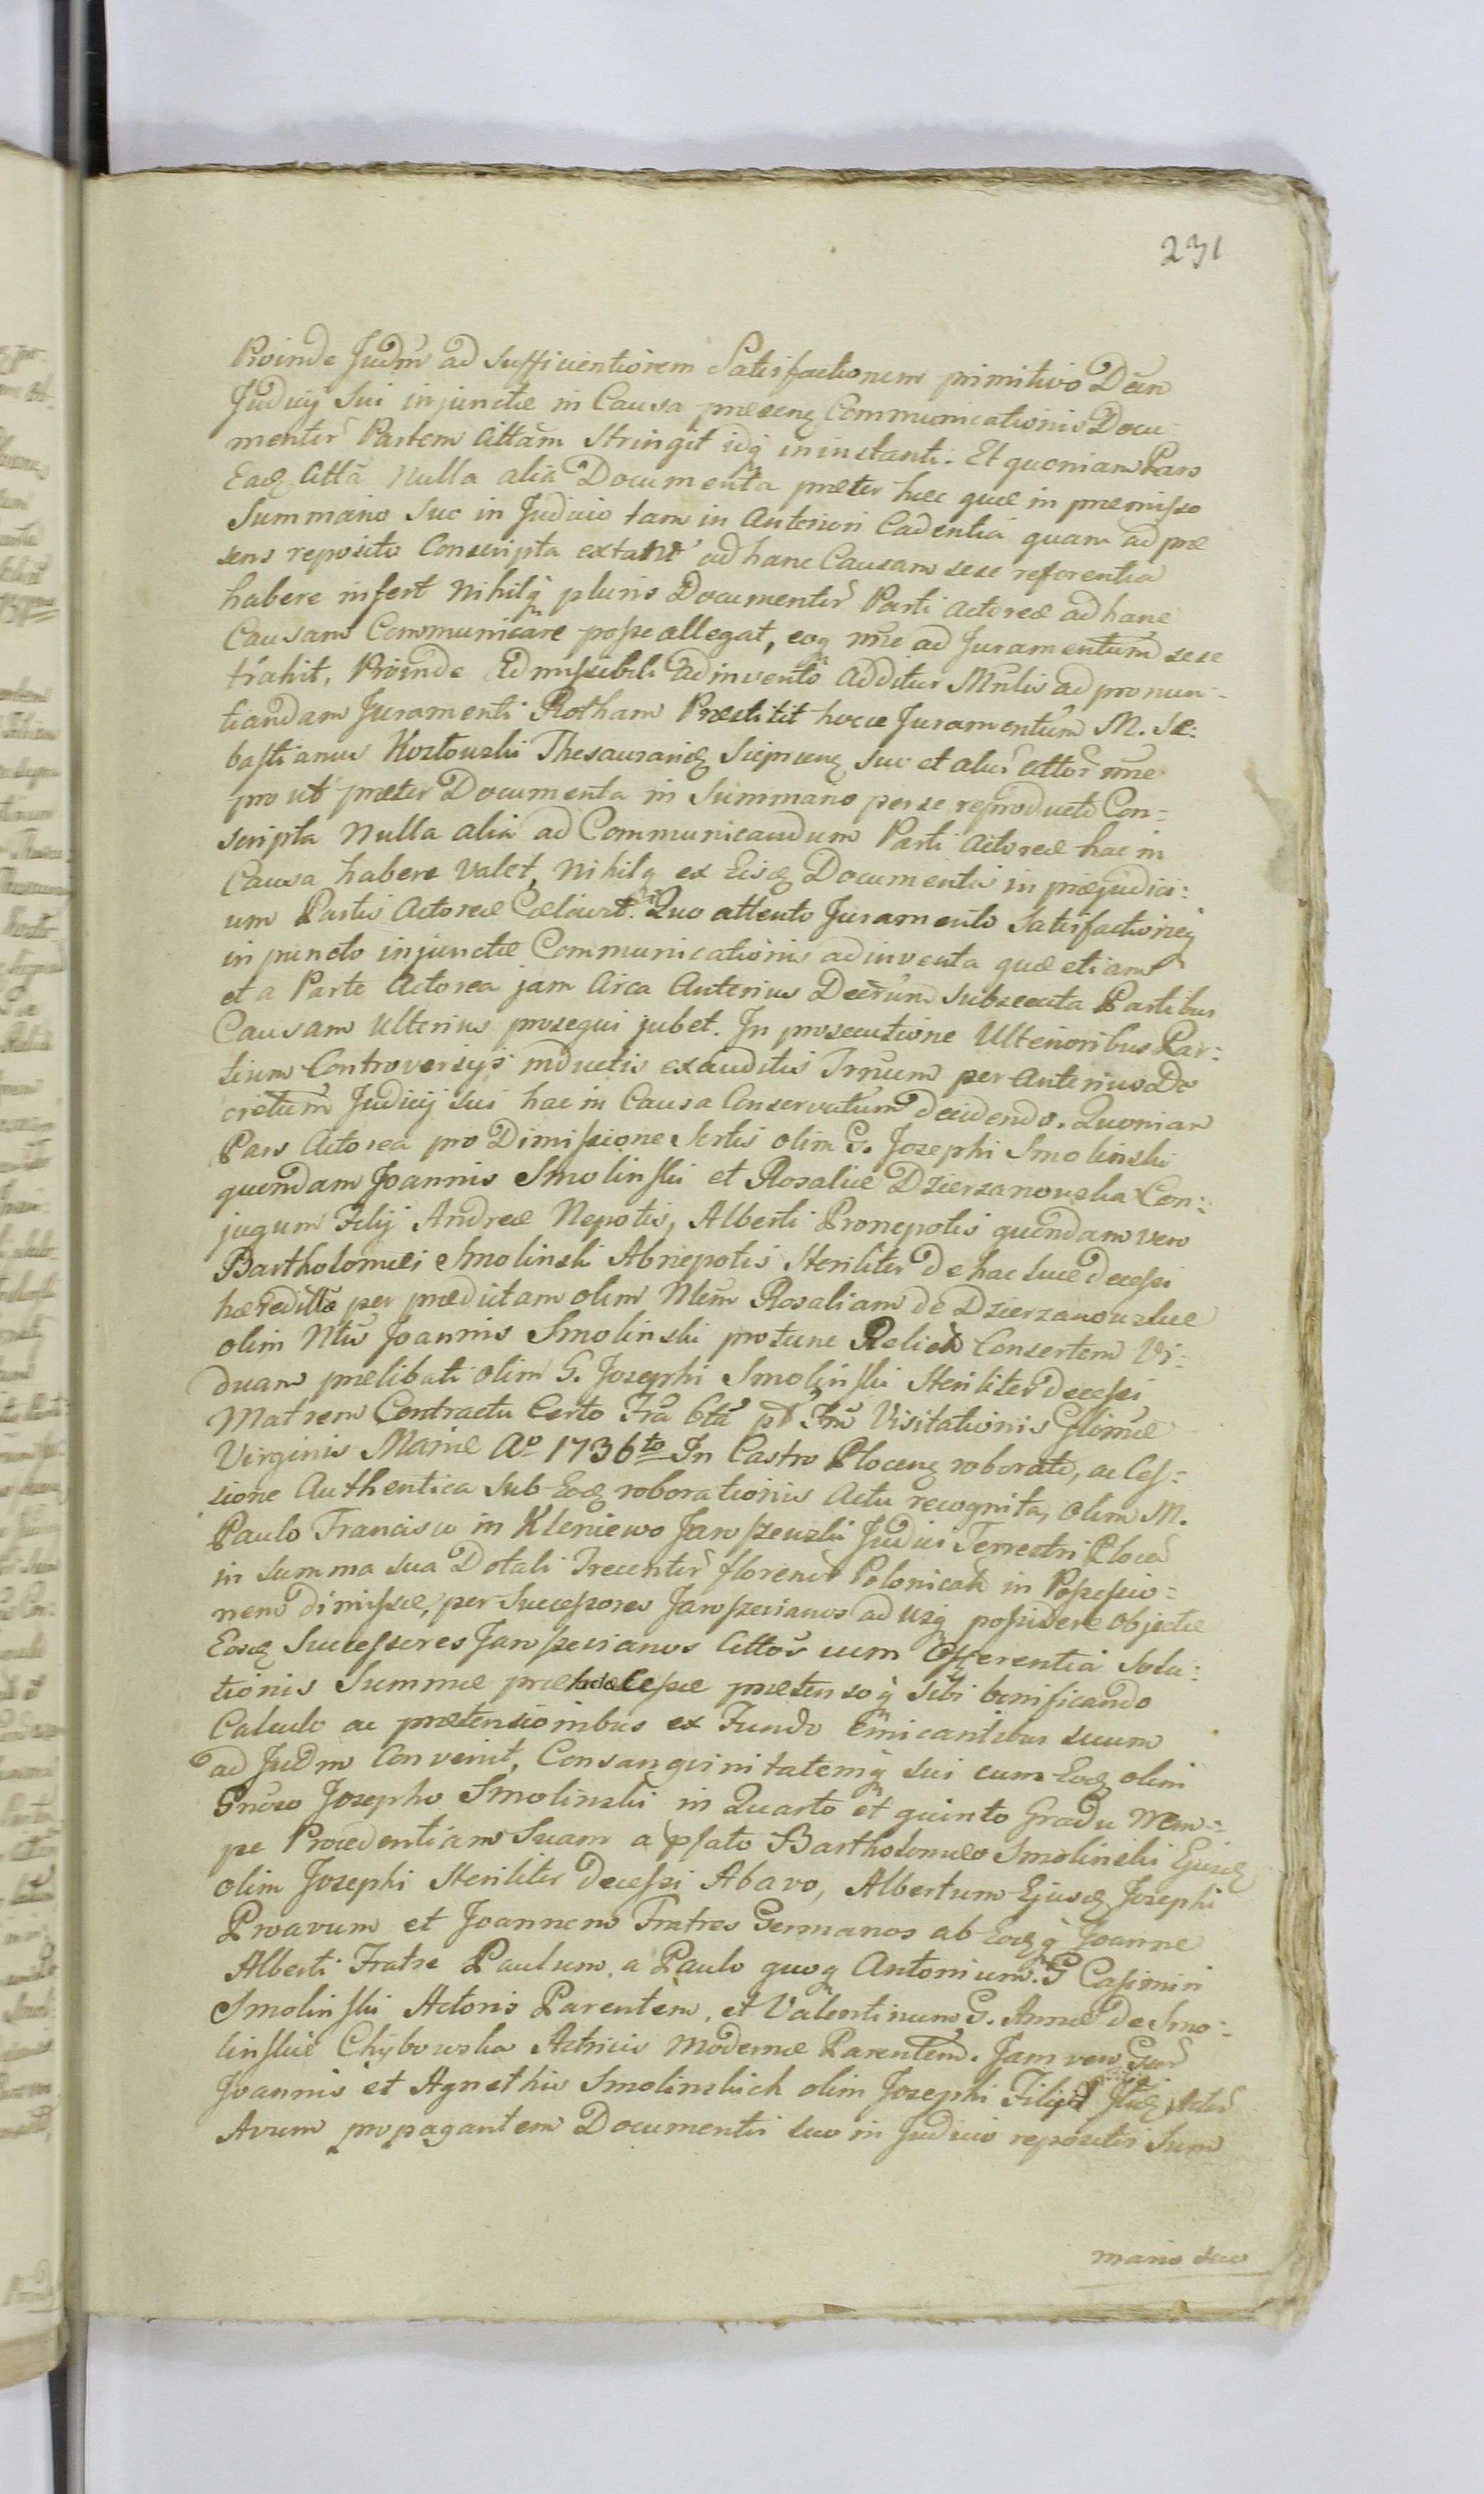 231
Proinde Judm ad sufficientiorem Satisfactionem primitivo Decn
Judicij Sui injunctæ in Causa præsenq Communicationis Docu-
mentor Partem Attam Stringit idq in instanti. Et quoniam Pars
Eadq Atta Nulla alia Documenta præter hæc quæ in præmisso
Summario Suo in Judicio tam in Anteriori Cadentia quam ad præ
sens reposito Conscripta extant ad hanc Causam sese referentia
habere infert Nihilq pluris Documentor Parti Actoreæ ad hanc
Causam Communicare posse allegat, eoq nne ad Juramentum sese
trahit, Proinde Admissibili adinvento additur Mnlis ad pronun-
tiandam Juramenti Rotham Præstitit hocce Juramentum M. Se:
bastianus Kozlowski Thesaurariq Sieprcenq suo et alior Attor nne
pro ut præter Documenta in Summario per se reproducto Con=
scripta Nulla alia ad Communicandum Parti Actoreæ hac in
Causa habere Valet, Nihilq ex Eisdq Documentis in præjudici:
um Partis Actoreæ Celavit. Quo attento Juramento Satisfactioneq
in puncto injunctæ Communicationis adinventa quæ etiam
et a Parte Actorea jam Circa Anterius Decrum subsecuta Partibus
Causam Ulterius prosequi jubet. In prosecutione Ulterioribus Par:
tium Controversijs inductis exauditis Trnum per Anterius De
cretum Judicij sui hac in Causa Conservatum decidendo. Quoniam
Pars Actorea pro Dimissione Sortis olim G. Josephi Smolinski
quondam Joannis Smolinski et Rosaliæ Dzierzanowska Con:
jugum Filij Andreæ Nepotis, Alberti Pronepotis quondam vero
Bartholomæi Smolinski Abnepotis Steriliter de hac luce decessi
hæreditæ per prædictam olim Nlem Rosaliam de Dzierzanowskie
olim Nlis Joannis Smolinski protunc Relictā Consortem Vi:
duam prælibati olim G. Josephi Smolinski Steriliter decessi
Matrem Contractu Certo Fra 6ta pt Fm Visitationis Glomæ
Virginis Mariæ Ao 1736to In Castro Plocenq roborato, ac Ces=
sione Authentica sub Eodq roborationis Actu recognita, olim M.
Paulo Francisco in Kleniewo Jaroszewski Judici Terrestri Plocen
in Summa sua Dotali Trecentor florenor Polonicali in Possessio=
nem dimissæ, per Successores Jaroszevianos ad usq possidere objectæ
Eosdq Successores Jaroszevianos Attos cum Offerentia Solu:
tionis Summæ præ prætensoq sibi bonificando
Calculo ac prætensionibus ex Fundo emicantibus suum
ad Judm Convenit, Consanguinitatemq sui cum Eodq olim
Gnroso Josepho Smolinski in Quarto et quinto Gradu Nem=
pe Procedentiam Suam a præfato Bartholomæo Smolinski Ejusdq
olim Josephi Steriliter Decessi Abavo, Albertum Ejusdq Josephi
Proavum et Joannem Fratres Germanos ab Eodq Joanne
Alberti Fratre Paulum, a Paulo quoq Antonium. G Casimiri
Smolinski Actoris Parentem, et Valentinum G. Annæ De Smo=
linskie Chybowska Actricis Modernæ Parentem. Jam vero Gsor
Joannis et Agnethis Smolinskich olim Josephi Filij Actor
Avum propagantem Documentis suo in Judicio repositis Sum
mario suo